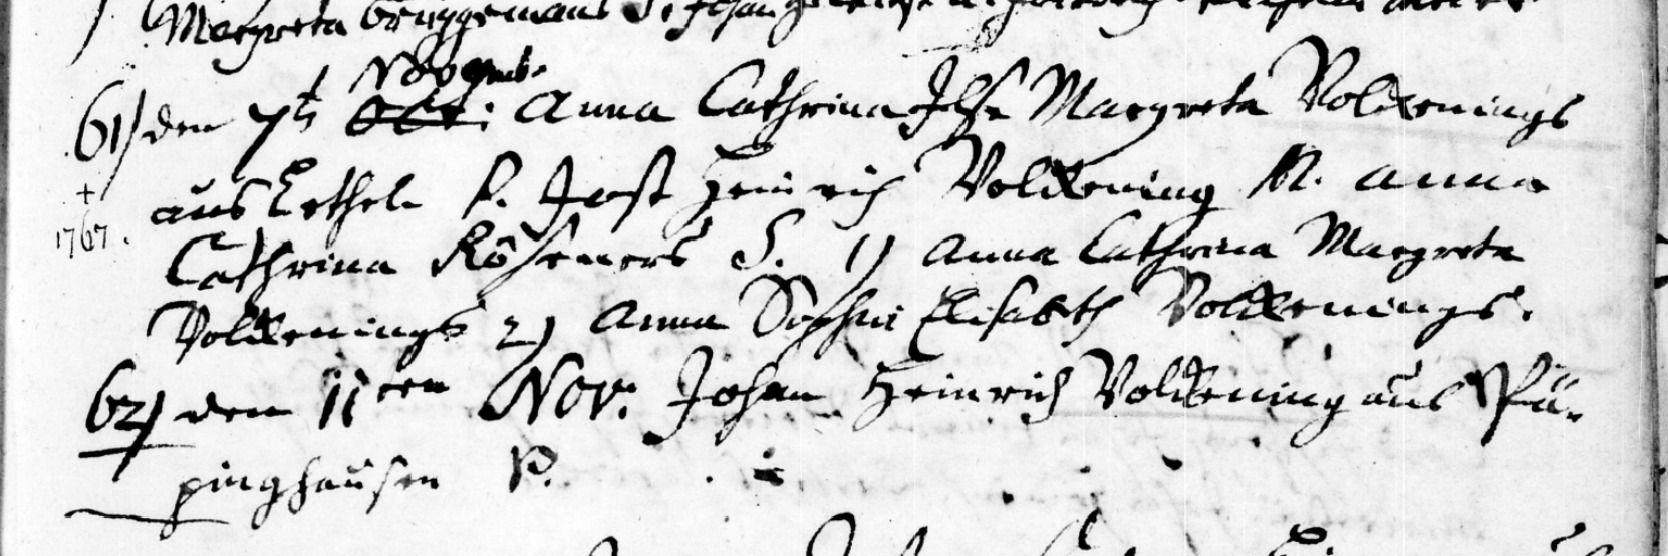 Margreta Brüggemans S. Johan
Novemb.
61) den 7t Oct: Anna Cathrina Ilse Margreta Volkenings
+ aus Eethel P. Jost Heinrich Volkening M. Anna
1767. Cathrina Kösemers S. 1) Anna Cathrina Margreta
Volkenings 2) Anna Sophie Elisabeth Volkenings.
62) den 11ten Nov: Johan Heinrich Volkening aus Pü-
pinghausen P.